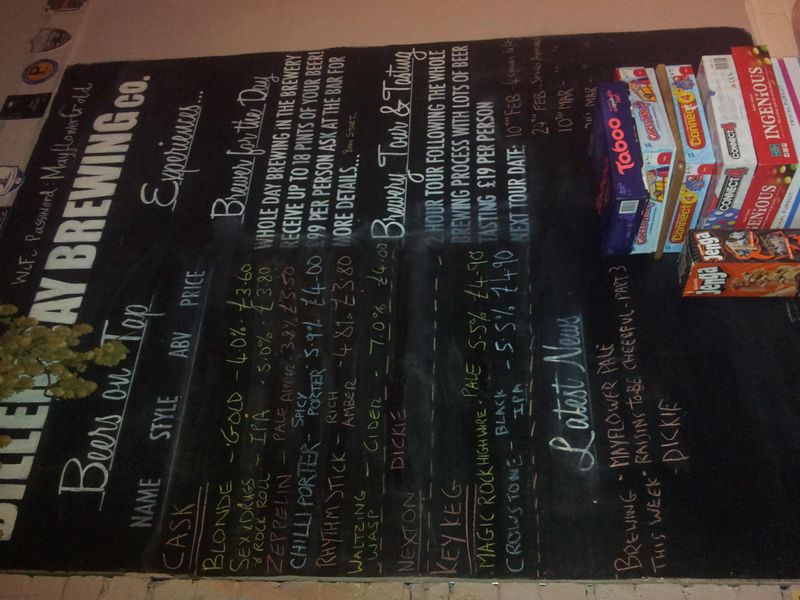 WiFi Password: Mayflowergold
BILLERICAY BREWING CO.
Beers on Tap
NAME STYLE ABV PRICE
CASK
BLONDE - GOLD - 4.0% - £3.60
SEX & DRUGS & ROCK ROLL - IPA - 5.0% - £3.80
ZEPPELIN - PALE AMBER 3.8% £3.50
CHILLI PORTER - SPICY PORTER 5.9% £4.00
RHYTHM STICK - RICH AMBER - 4.8% £3.80
WALTZING WASP - CIDER - 7.0% £4.00
NEXT ON DICKIE
KEY KEG
MAGIC ROCK HIGHWIRE - PALE 5.5% £4.90
CROWSTONE - BLACK IPA - 5.5% £4.90
Experiences...
Brewer for the Day
WHOLE DAY BREWING IN THE BREWERY
RECEIVE UP TO 18 PINTS OF YOUR BEER!
£99 PER PERSON ASK AT THE BAR FOR
MORE DETAILS...
Brewery Tour & Tasting
2 HOUR TOUR FOLLOWING THE WHOLE
BREWING PROCESS WITH LOTS OF BEER
TASTING £19 PER PERSON
NEXT TOUR DATE: 10TH FEB
24TH FEB
10TH MAR -
MAR
Latest News
BREWING - MAYFLOWER PALE
THIS WEEK - RAISING TO BE CHEERFUL - PART 3
- DICKIE
Taboo
Connect 4
CONNECT 4
INGENIOUS
INGENIOUS
Jenga
Jenga